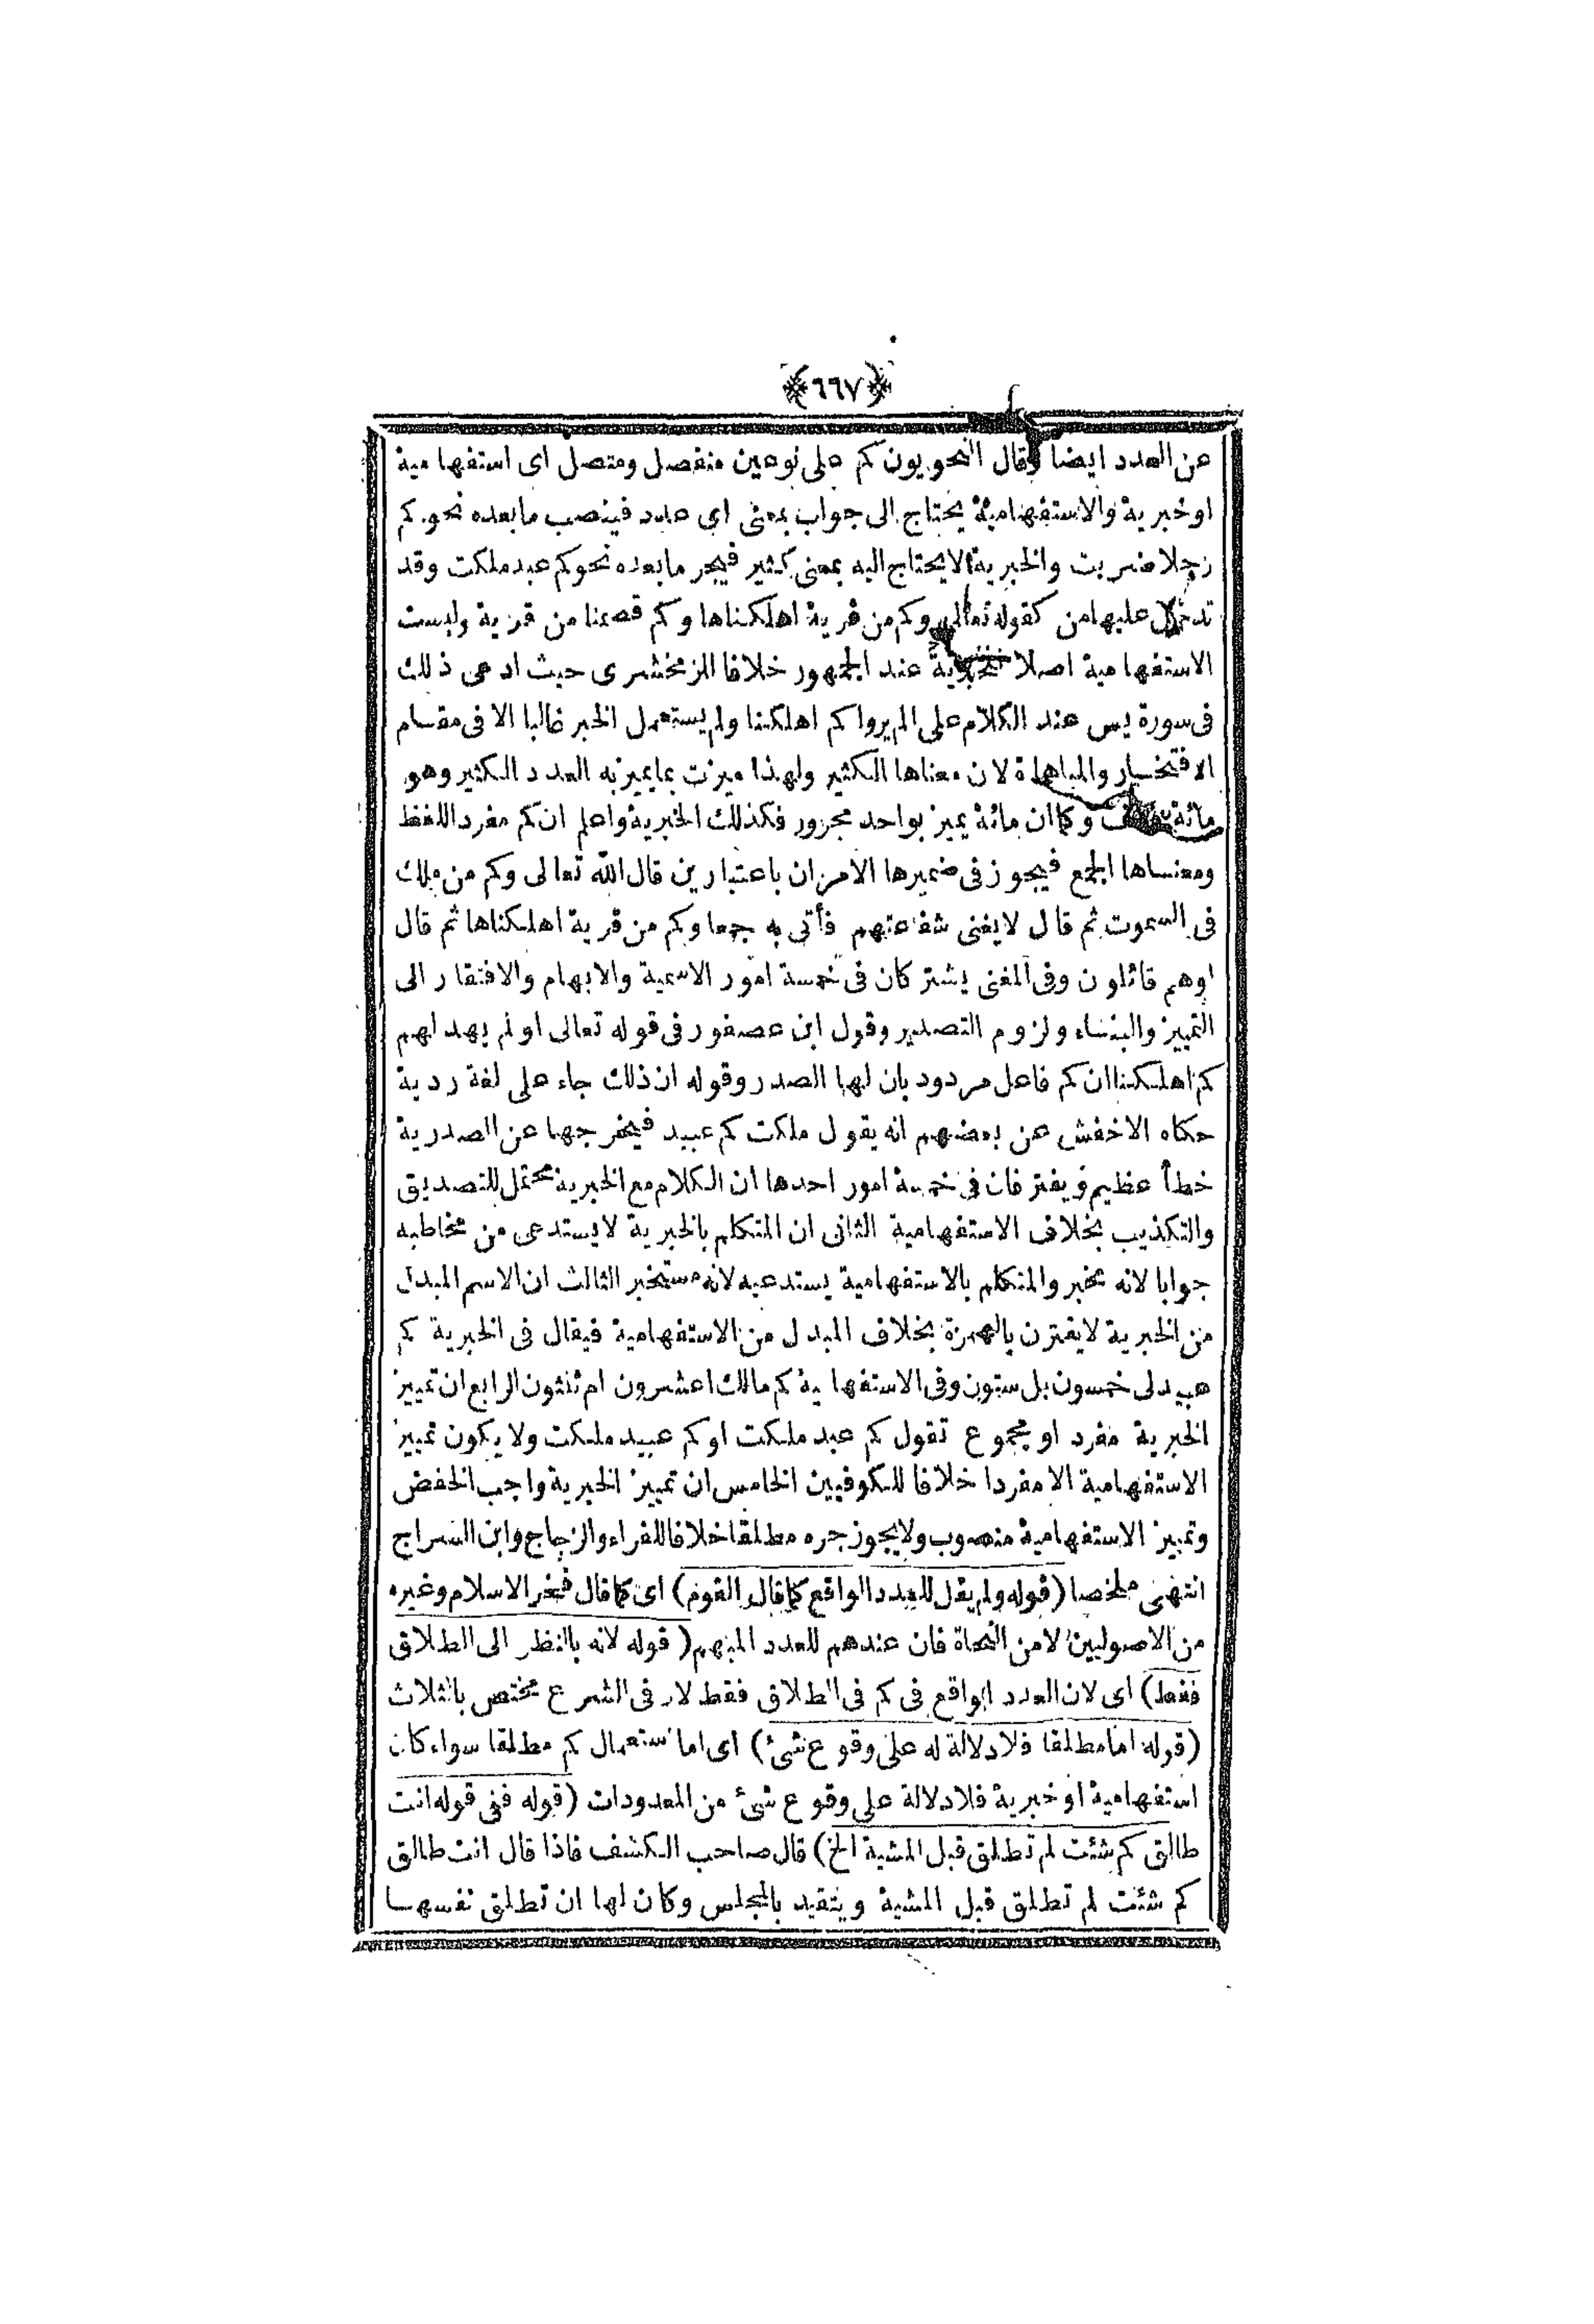 ﴿٦٩٧﴾
عن العدد ايضا وقال النحويون كم على نوعين منفصل ومتصل اى استفهامية
او خبرية والاستفهامية يحتاج الى جواب بمعنى اى عدد فينصب ما بعده نحو كم
رجلا ضربت والخبرية لا يحتاج اليه بمعنى كثير فيجر ما بعده نحو كم عبد ملكت وقد
تدخل عليها من كقوله تعالى وكم من قرية اهلكناها وكم قصمنا من قرية وليست
الاستفهامية اصلا للخبرية عند الجمهور خلافا للزمخشرى حيث ادعى ذلك
فى سورة يس عند الكلام على الم يروا كم اهلكنا ولم يستعمل الخبر غالبا الا فى مقام
الافتخار والمباهاة لان معناها الكثير ولهذا ميزت بما يميز به العدد الكثير وهو
مائة وكما ان مائة يميز بواحد مجرور فكذلك الخبرية واعلم ان كم مفرد اللفظ
ومعناها الجمع فيجوز فى ضميرها الامران باعتبارين قال الله تعالى وكم من ملك
فى السموت ثم قال لا يغنى شفاعتهم فأتى به جمعا وكم من قرية اهلكناها ثم قال
اوهم قائلون وفى المغنى يشتركان فى خمسة امور الاسمية والابهام والافتقار الى
التمييز والبناء ولزوم التصدير وقول ابن عصفور فى قوله تعالى او لم يهد لهم
كم اهلكنا ان كم فاعل مردود بان لها الصدر وقوله ان ذلك جاء على لغة ردية
حكاه الاخفش عن بعضهم انه يقول ملكت كم عبيد فيخرجها عن الصدرية
خطأ عظيم ويفترقان فى خمسة امور احدها ان الكلام مع الخبرية محتمل للتصديق
والتكذيب بخلاف الاستفهامية الثانى ان المتكلم بالخبرية لا يستدعى من مخاطبه
جوابا لانه مخبر والمتكلم بالاستفهامية يستدعيه لانه مستخبر الثالث ان الاسم المبدل
من الخبرية لا يقترن بالهمزة بخلاف المبدل من الاستفهامية فيقال فى الخبرية كم
عبيد لى خمسون بل ستون وفى الاستفهامية كم مالك اعشرون ام ثلثون الرابع ان تمييز
الخبرية مفرد او مجموع تقول كم عبد ملكت او كم عبيد ملكت ولا يكون تمييز
الاستفهامية الا مفردا خلافا للكوفيين الخامس ان تمييز الخبرية واجب الخفض
وتمييز الاستفهامية منصوب ولا يجوز جره مطلقا خلافا للفراء والزجاج وابن السراج
انتهى ملخصا (قوله ولم يقل للعدد الواقع كما قال القوم) اى كما قال فخر الاسلام وغيره
من الاصوليين لا من النحاة فان عندهم للعدد المبهم (قوله لانه بالنظر الى الطلاق
فقط) اى لان العدد الواقع فى كم فى الطلاق فقط لا فى الشرع مختص بالثلاث
(قوله اما مطلقا فلا دلالة له على وقوع شئ) اى اما استعمال كم مطلقا سواء كان
استفهامية او خبرية فلا دلالة على وقوع شئ من المعدودات (قوله ففى قوله انت
طالق كم شئت لم تطلق قبل المشية الخ) قال صاحب الكشف فاذا قال انت طالق
كم شئت لم تطلق قبل المشية ويتقيد بالمجلس وكان لها ان تطلق نفسها